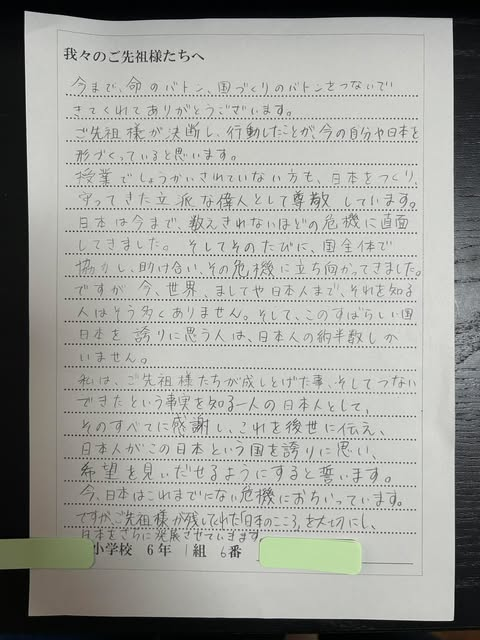 我々のご先祖様たちへ
今まで、命のバトン、国づくりのバトンをつないで
きてくれてありがとうございます。
ご先祖様が決断し、行動したことが、今の自分や日本を
形づくっていると思います。
授業でしょうかいされていない方も、日本をつくり、
守ってきた立派な偉人として尊敬しています。
日本は今まで、数えきれないほどの危機に直面
してきました。そしてそのたびに、国全体で
協力し、助け合い、その危機に立ち向かってきました。
ですが今、世界、ましてや日本人まで、それを知る
人はそう多くありません。そして、このすばらしい国
日本を誇りに思う人は、日本人の約半数しか
いません。
私は、ご先祖様たちが成しとげた事、そしてつない
できたという事実を知る一人の日本人として、
そのすべてに感謝し、これを後世に伝え、
日本人がこの日本という国を誇りに思い、
希望を見いだせるようにすると誓います。
今、日本はこれまでにない危機におちいっています。
ですが、ご先祖様が残してくれた「日本のこころ」を大切にし、
日本をさらに発展させていきます。
小学校 6年 1組 6番